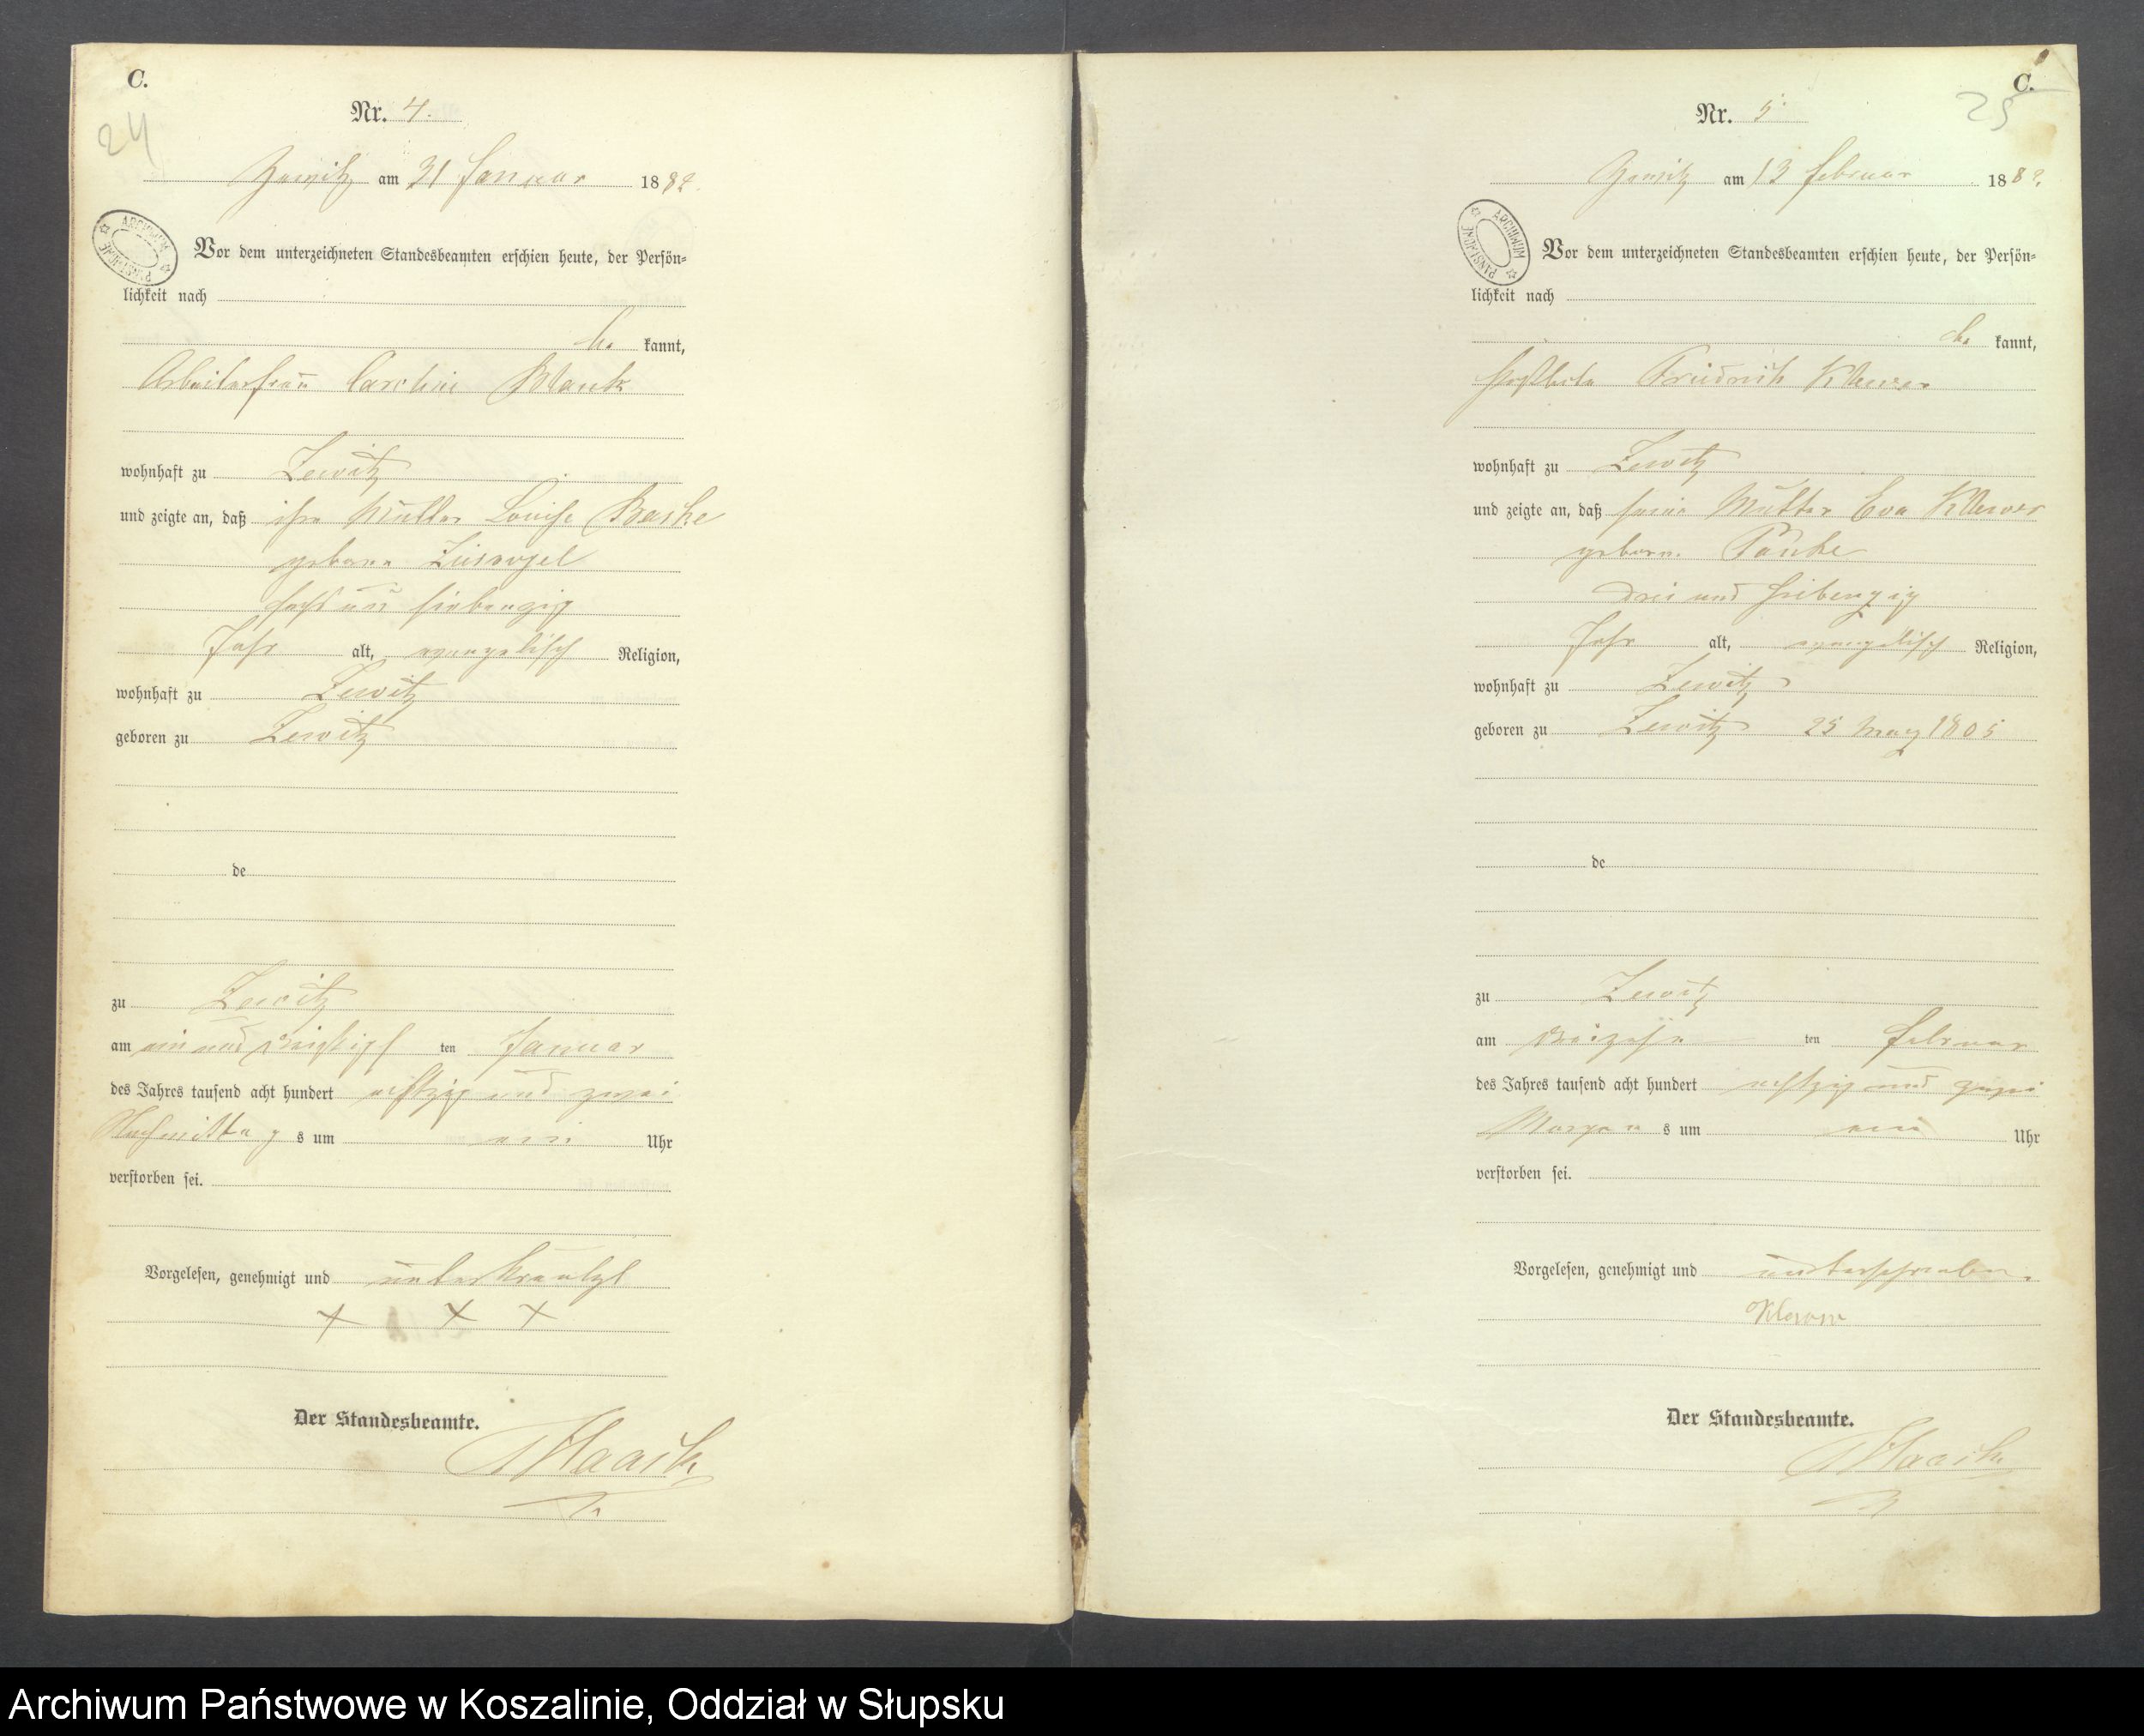 C.
24
Nr. 4.
am 31 Januar 1882.
ARCHIWUM PAŃSTWOWE
Vor dem unterzeichneten Standesbeamten erschien heute, der Persön-
lichkeit nach
be kannt,
Arbeiterfrau Caroline Blank
wohnhaft zu Zewitz
und zeigte an, daß ihre Mutter Louise Baske
geborne
sechs und siebenzig
Jahr alt, evangelisch Religion,
wohnhaft zu Zewitz
geboren zu Zewitz
de
zu Zewitz
am ein und dreißigst ten Januar
des Jahres tausend acht hundert achtzig und zwei
Nachmittag s um ein Uhr
verstorben sei.
Vorgelesen, genehmigt und unterkreutzt
X X X
Der Standesbeamte.
C.
25
Nr. 5
am 13 Februar 1882.
ARCHIWUM PAŃSTWOWE
Vor dem unterzeichneten Standesbeamten erschien heute, der Persön-
lichkeit nach
be kannt,
Friedrich Klewer
wohnhaft zu Zewitz
und zeigte an, daß seine Mutter Eva Klewer
geborne
drei und siebenzig
Jahr alt, evangelisch Religion,
wohnhaft zu Zewitz
geboren zu Zewitz 25 May 1805
de
zu Zewitz
am dreizehn ten Februar
des Jahres tausend acht hundert achtzig und zwei
Morgen s um ein Uhr
verstorben sei.
Vorgelesen, genehmigt und unterschrieben.
Klewer
Der Standesbeamte.
Archiwum Państwowe w Koszalinie, Oddział w Słupsku